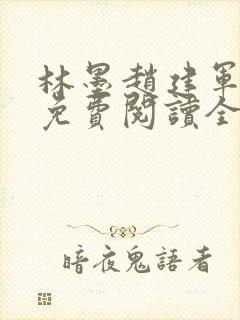 林墨趙建軍
免費閱讀全
暗夜鬼語者